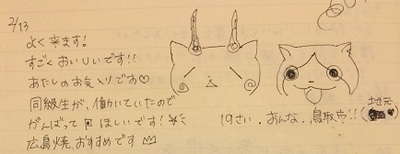 2/13
よく来ます!
すごくおいしいです!!
あたしのお気入りです♡
同級生が、働いていたので
がんばって ほしいです!
広島焼、おすすめです
19さい、おんな、鳥取市!!
地元